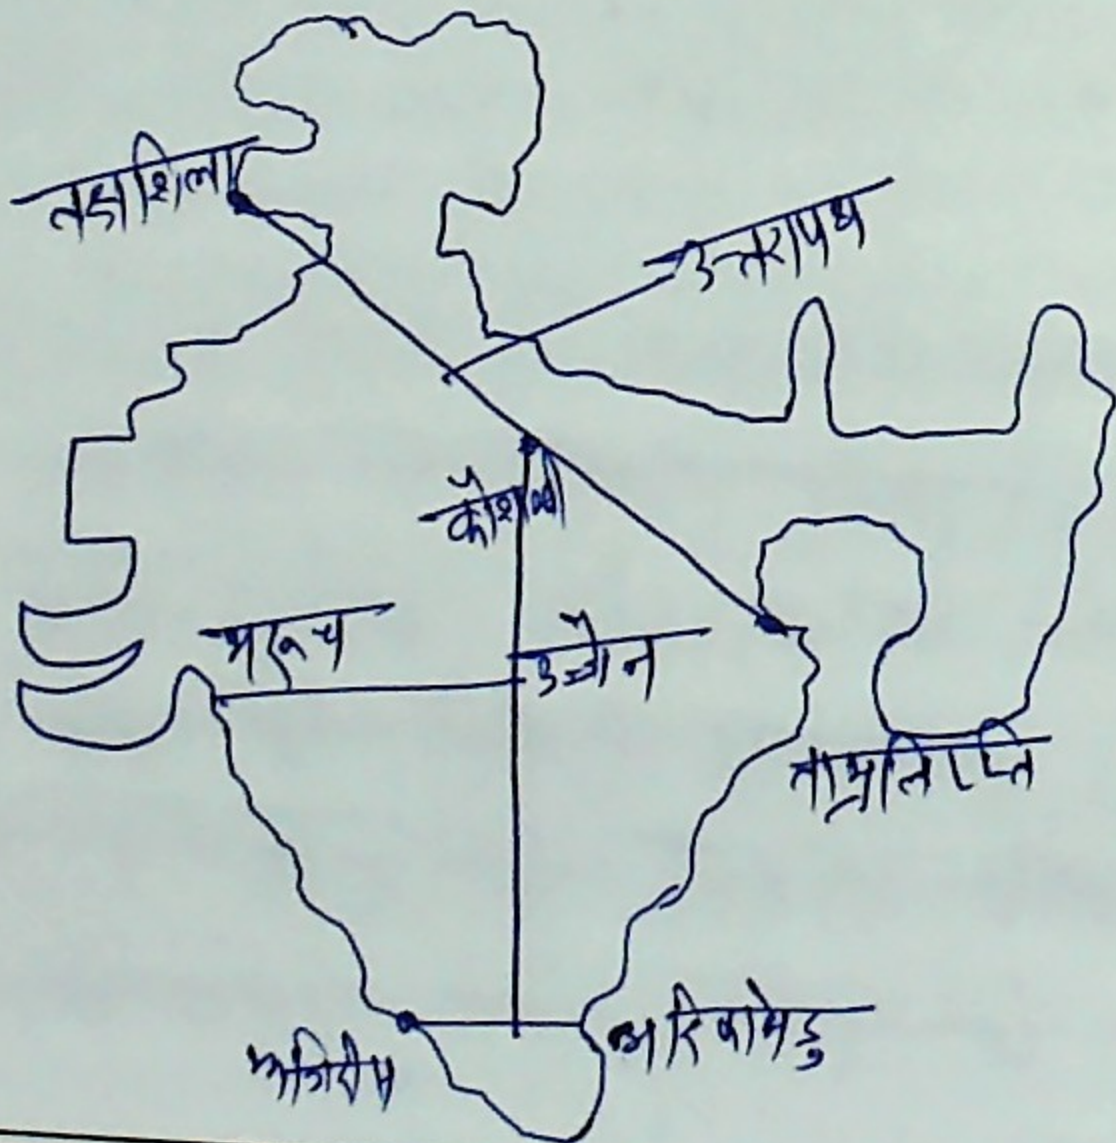 तक्षशिला
उत्तरापथ
कौशाम्बी
भरूच
उज्जैन
ताम्रलिप्ति
अरिकामेडु